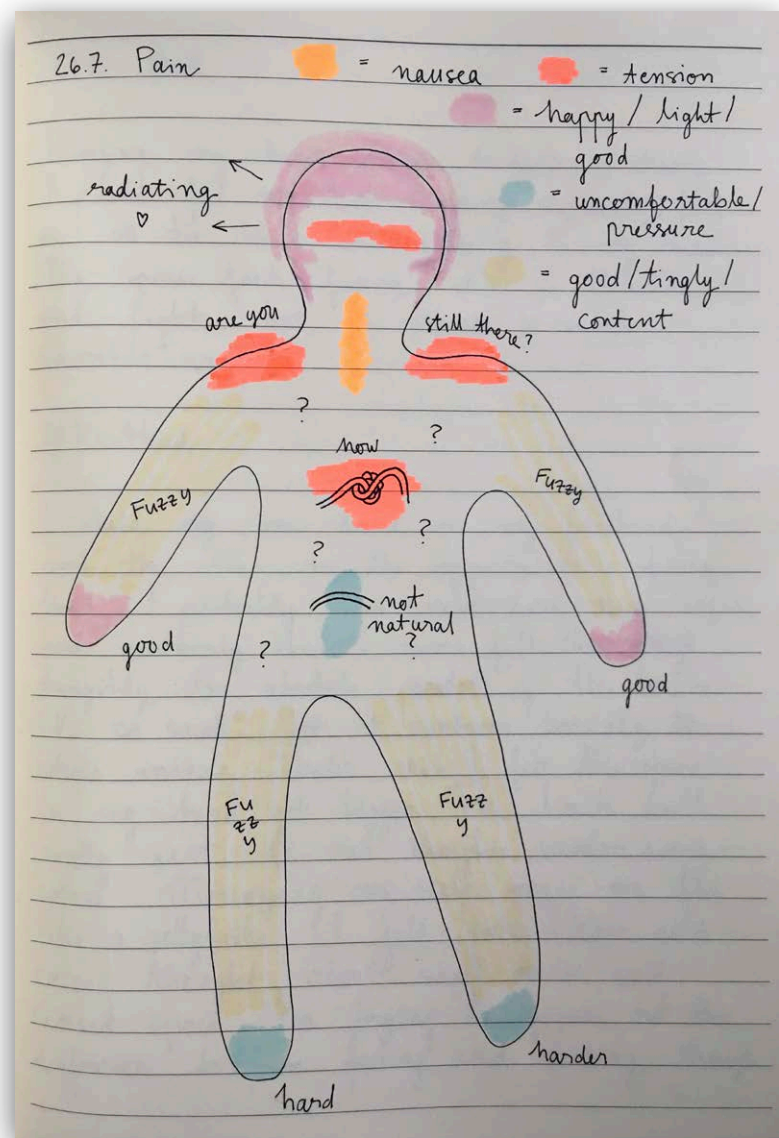 26.7. Pain = nausea = tension
= happy / light / good
radiating ♡
= uncomfortable/ pressure
= good/tingly/ content
are you still there?
?
?
now
Fuzzy
Fuzzy
?
?
not natural
?
?
good
good
Fu
zz
y
Fuzz
y
harder
hard